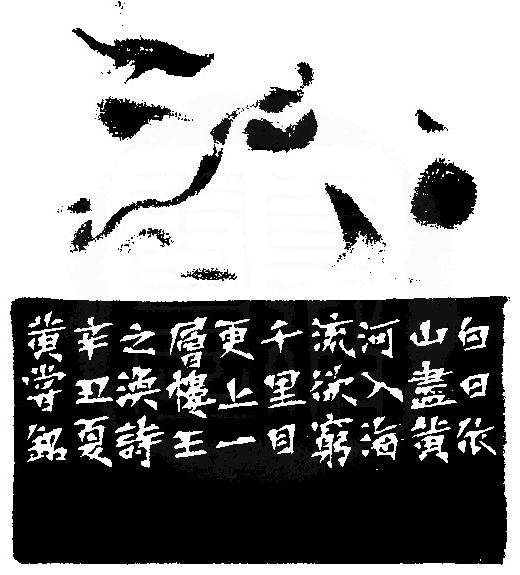 白日依
山盡黃
河入海
流欲窮
千里目
更上一
層樓王
之渙詩
辛丑夏
黃嘗銘